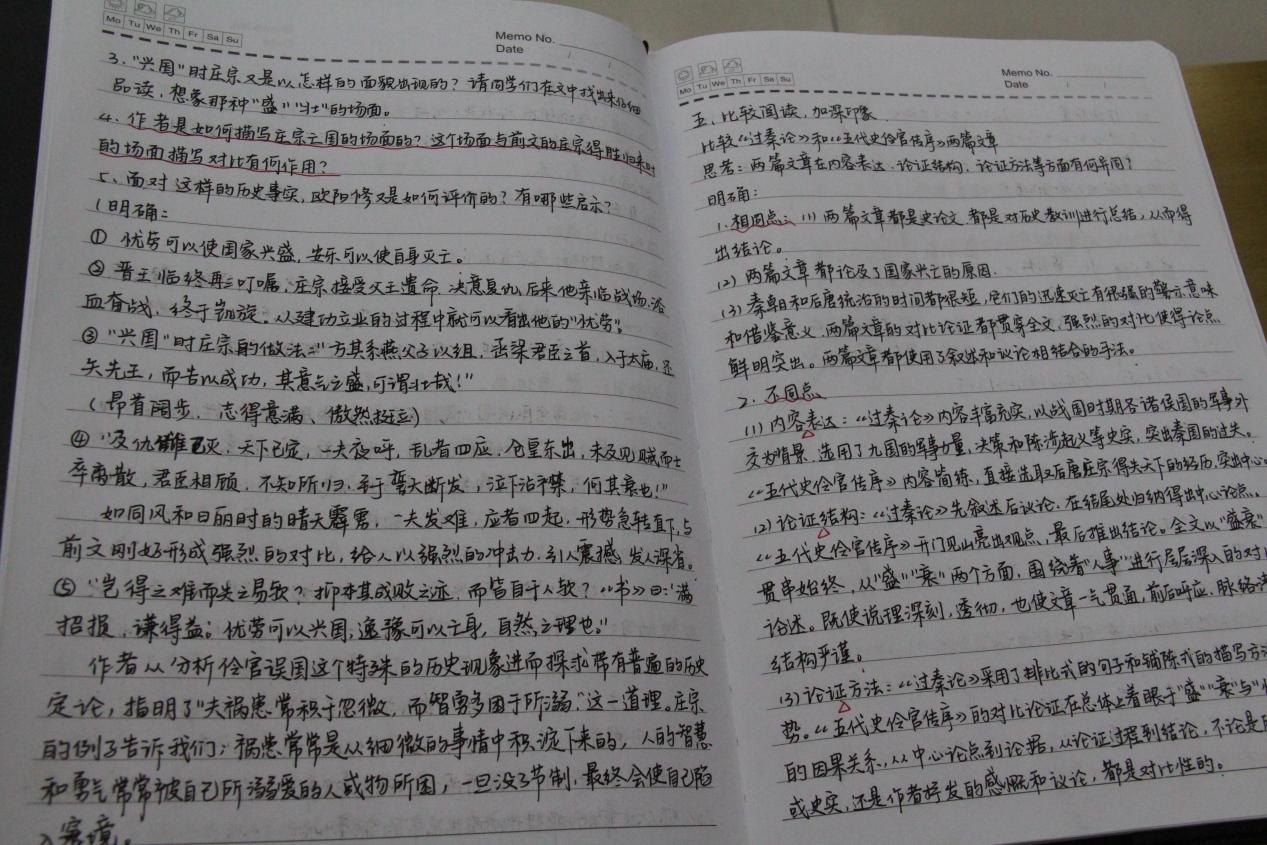 Mo Tu We Th Fr Sa Su
Memo No.
Date / /
3. "兴国"时庄宗又是以怎样的面貌出现的？请同学们在文中找出来仔细
品读，想象那种"盛""壮"的场面。
4. 作者是如何描写庄宗亡国的场面的？这个场面与前文的庄宗得胜归来时
的场面描写对比有何作用？
5. 面对这样的历史事实，欧阳修又是如何评价的？有哪些启示？
（明确：
① 忧劳可以使国家兴盛，安乐可以使自身灭亡。
② 晋王临终再三叮嘱，庄宗接受父王遗命，决意复仇，后来他亲临战场，浴
血奋战，终于凯旋。从建功立业的过程中就可以看出他的"忧劳"。
③ "兴国"时庄宗的做法："方其系燕父子以组，函梁君臣之首，入于太庙，还
矢先王，而告以成功，其意气之盛，可谓壮哉！"
（昂首阔步、志得意满、傲然挺立）
④ "及仇雠已灭，天下已定，一夫夜呼，乱者四应，仓皇东出，未及见贼而士
卒离散，君臣相顾，不知所归，至于誓天断发，泣下沾襟，何其衰也！"
如同风和日丽时的晴天霹雳，一夫发难，应者四起，形势急转直下，与
前文刚好形成强烈的对比，给人以强烈的冲击力，引人震撼，发人深省。
⑤ "岂得之难而失之易欤？抑本其成败之迹，而皆自于人欤？《书》曰：'满
招报，谦得益。'忧劳可以兴国，逸豫可以亡身，自然之理也。"
作者从分析伶官误国这个特殊的历史现象进而探求带有普遍的历史
定论，指明了"夫祸患常积于忽微，而智勇多困于所溺"这一道理。庄宗
的例子告诉我们：祸患常常是从细微的事情中积淀下来的，人的智慧
和勇气常常被自己所溺爱的人或物所困，一旦没了节制，最终会使自己陷
入窘境。
Mo Tu We Th Fr Sa Su
Memo No.
Date / /
五、比较阅读，加深印象
比较《过秦论》和《五代史伶官传序》两篇文章
思考：两篇文章在内容表达、论证结构、论证方法等方面有何异同？
明确：
1. 相同点：(1) 两篇文章都是史论文，都是对历史教训进行总结，从而得
出结论。
(2) 两篇文章都论及了国家兴亡的原因.
(3) 秦朝和后唐统治的时间都很短，它们的迅速灭亡有很强的警示意味
和借鉴意义，两篇文章的对比论证都贯穿全文，强烈的对比使得论点
鲜明突出。两篇文章都使用了叙述和议论相结合的手法。
2. 不同点
(1) 内容表达：《过秦论》内容丰富充实，以战国时期各诸侯国的军事外
交为背景，选用了九国的军事力量，决策和陈涉起义等史实，突出秦国的过失。
《五代史伶官传序》内容简练，直接选取后唐庄宗得失天下的经历，突出中心
(2) 论证结构：《过秦论》先叙述后议论，在结尾处归纳得出中心论点。
《五代史伶官传序》开门见山亮出观点，最后推出结论。全文以"盛衰"
贯串始终，从"盛""衰"两个方面，围绕着"人事"进行层层深入的对比
论述。既使说理深刻，透彻，也使文章一气贯通，前后呼应，脉络清
结构严谨。
(3) 论证方法：《过秦论》采用了排比式的句子和铺陈式的描写方法
势。《五代史伶官传序》的对比论证在总体上着眼于"盛""衰"与"
的因果关系，从中心论点到论据，从论证过程到结论，不论是
或史实，还是作者抒发的感慨和议论，都是对比性的。